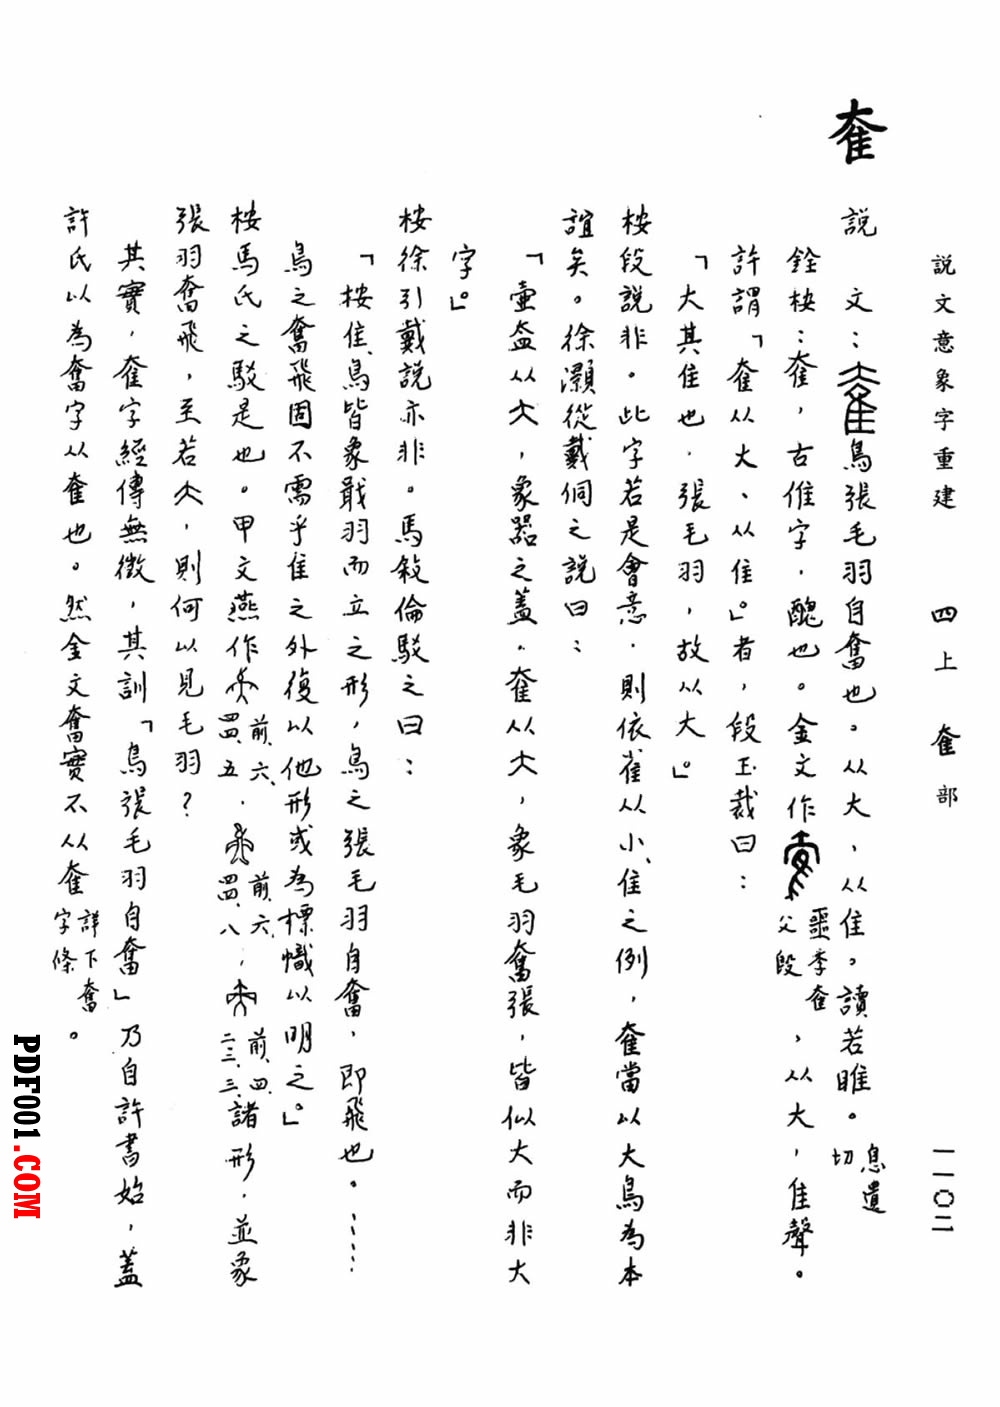 說文意象字重建 四上 奞部 一一〇二
奞
說 文：奞鳥張毛羽自奮也。从大，从隹。讀若睢。息遺切
銓桉：奞，古倠字，醜也。金文作 噩季奞父段，从大，隹聲。
許謂「奞从大、从隹。」者，段玉裁曰：
「大其隹也，張毛羽，故从大。」
桉段說非。此字若是會意，則依雀从小、隹之例，奞當以大鳥為本
誼矣。徐灝從戴侗之說曰：
「壷盇从大，象器之蓋，奞从大，象毛羽奮張，皆似大而非大
字。」
桉徐引戴說亦非。馬敘倫駁之曰：
「桉隹、鳥皆象戢羽而立之形，鳥之張毛羽自奮，即飛也。……
鳥之奮飛固不需乎隹之外復以他形或為標幟以明之。」
桉馬氏之駁是也。甲文燕作 前、六、四四、五， 前、六、四四、八， 前、四、二三、三、諸形，並象
張羽奮飛，至若大，則何以見毛羽？
其實，奞字經傳無徵，其訓「鳥張毛羽自奮」乃自許書始，蓋
許氏以為奮字从奞也。然金文奮實不从奞詳下奮字條。
PDF001.COM